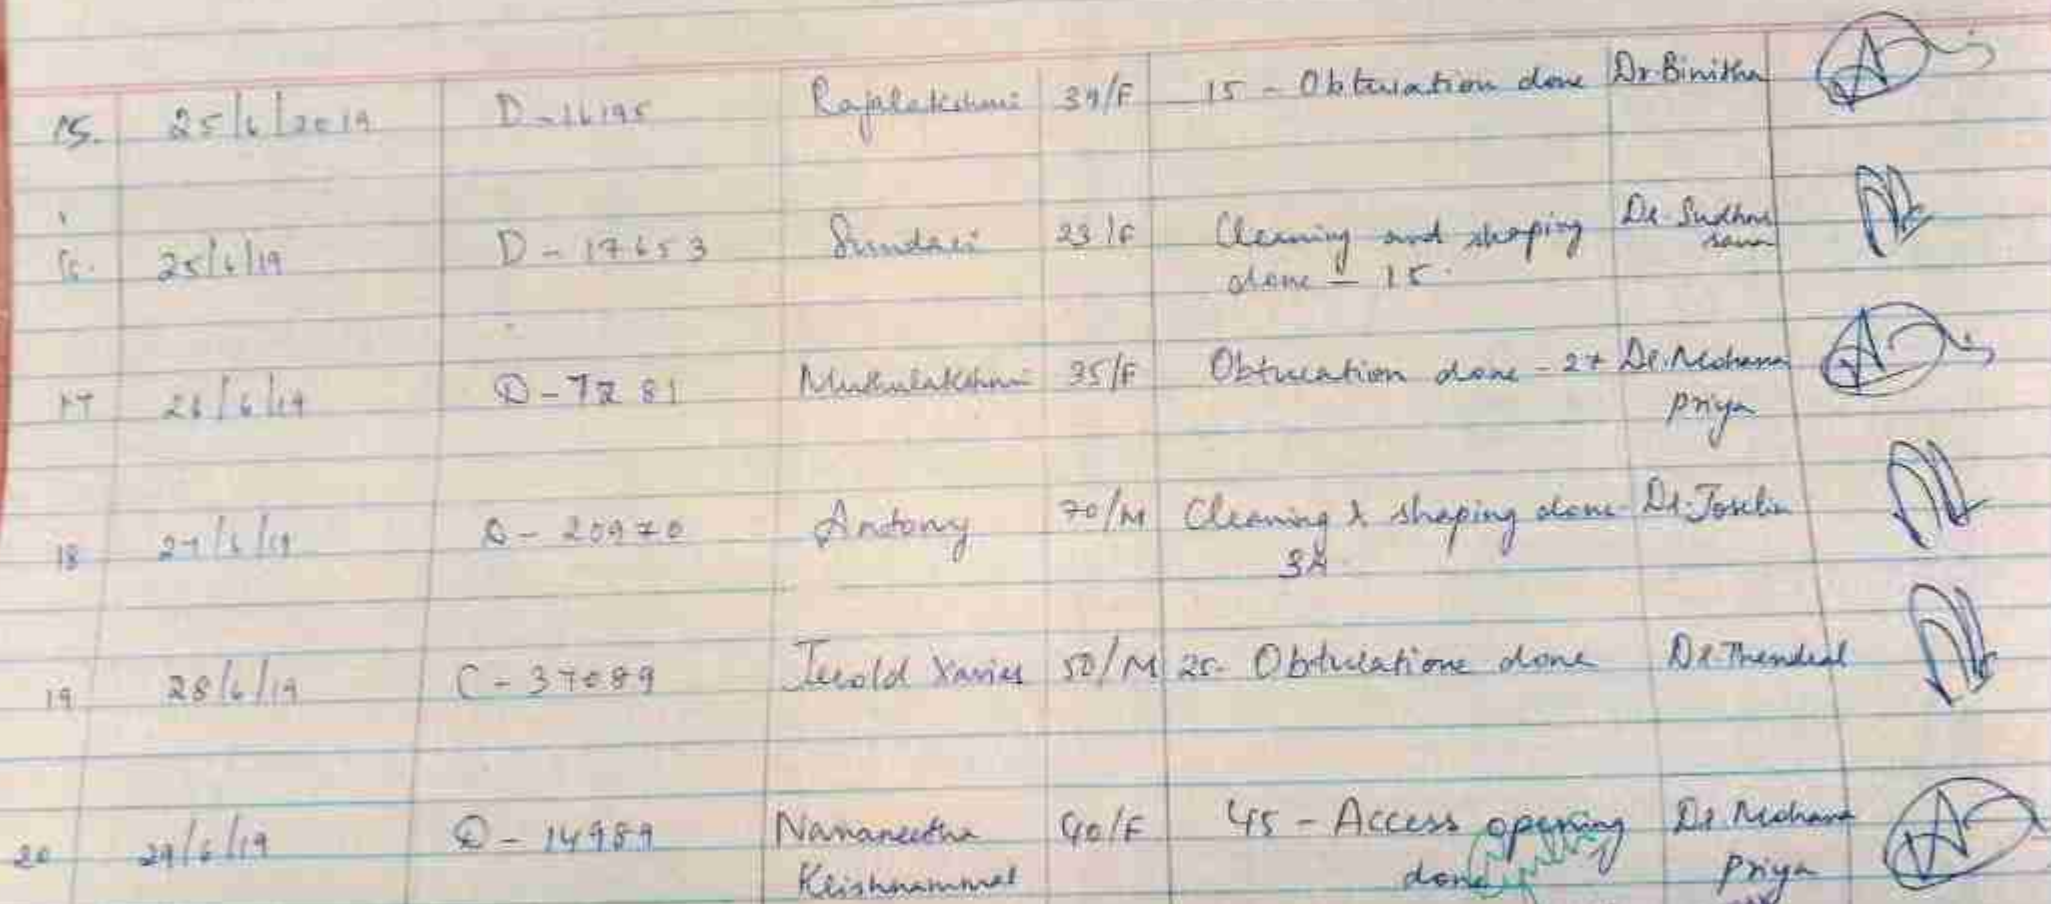 15. 25/6/2019 D-16195 Rajalakshmi 39/F 15 - Obturation done Dr. Binitha
25/6/19 D - 17653 Sundari 23/F Cleaning and shaping Dr. Sudhar
done - 15. sana
17 26/6/19 D-7281 Muthulakshmi 35/F Obturation done - 27 Dr. Mohana
Priya
18 27/6/19 D - 20970 Antony 70/M Cleaning & shaping done Dr. Joselin
19 28/6/19 C - 37089 Jerold Xavier 50/M 25- Obturation done Dr. Thendral
20 29/6/19 D - 14989 Navaneetha 40/F 45 - Access opening Dr. Mohana
Krishnammal done Priya